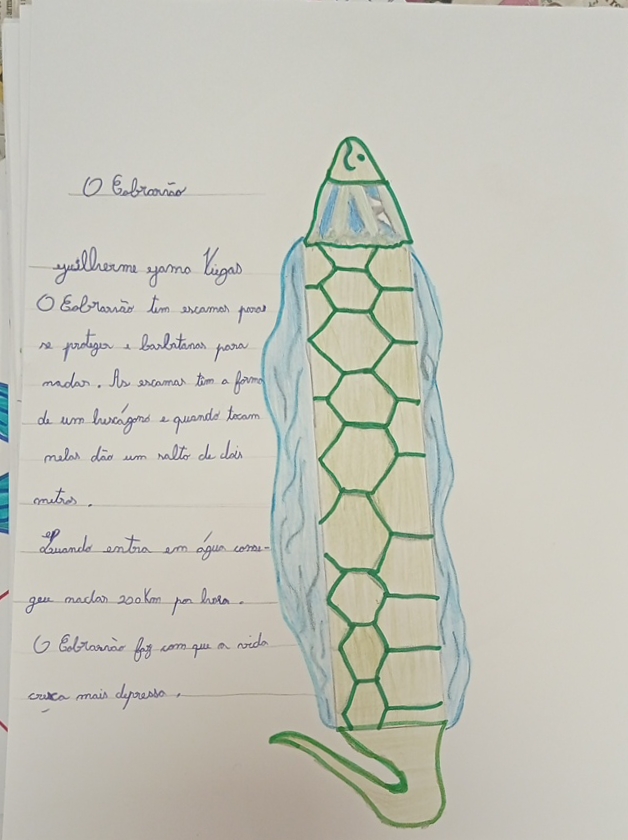 O Cobrarão
guilherme gama Viegas
O Cobrarão tem escamas para
se proteger e barbatanas para
nadar. As escamas têm a forma
de um hexágono e quando tocam
nelas dão um salto de dois
metros.
Quando entra em água conse-
geu nadar 200Km por hora.
O Cobrarão faz com que a vida
cresça mais depressa.